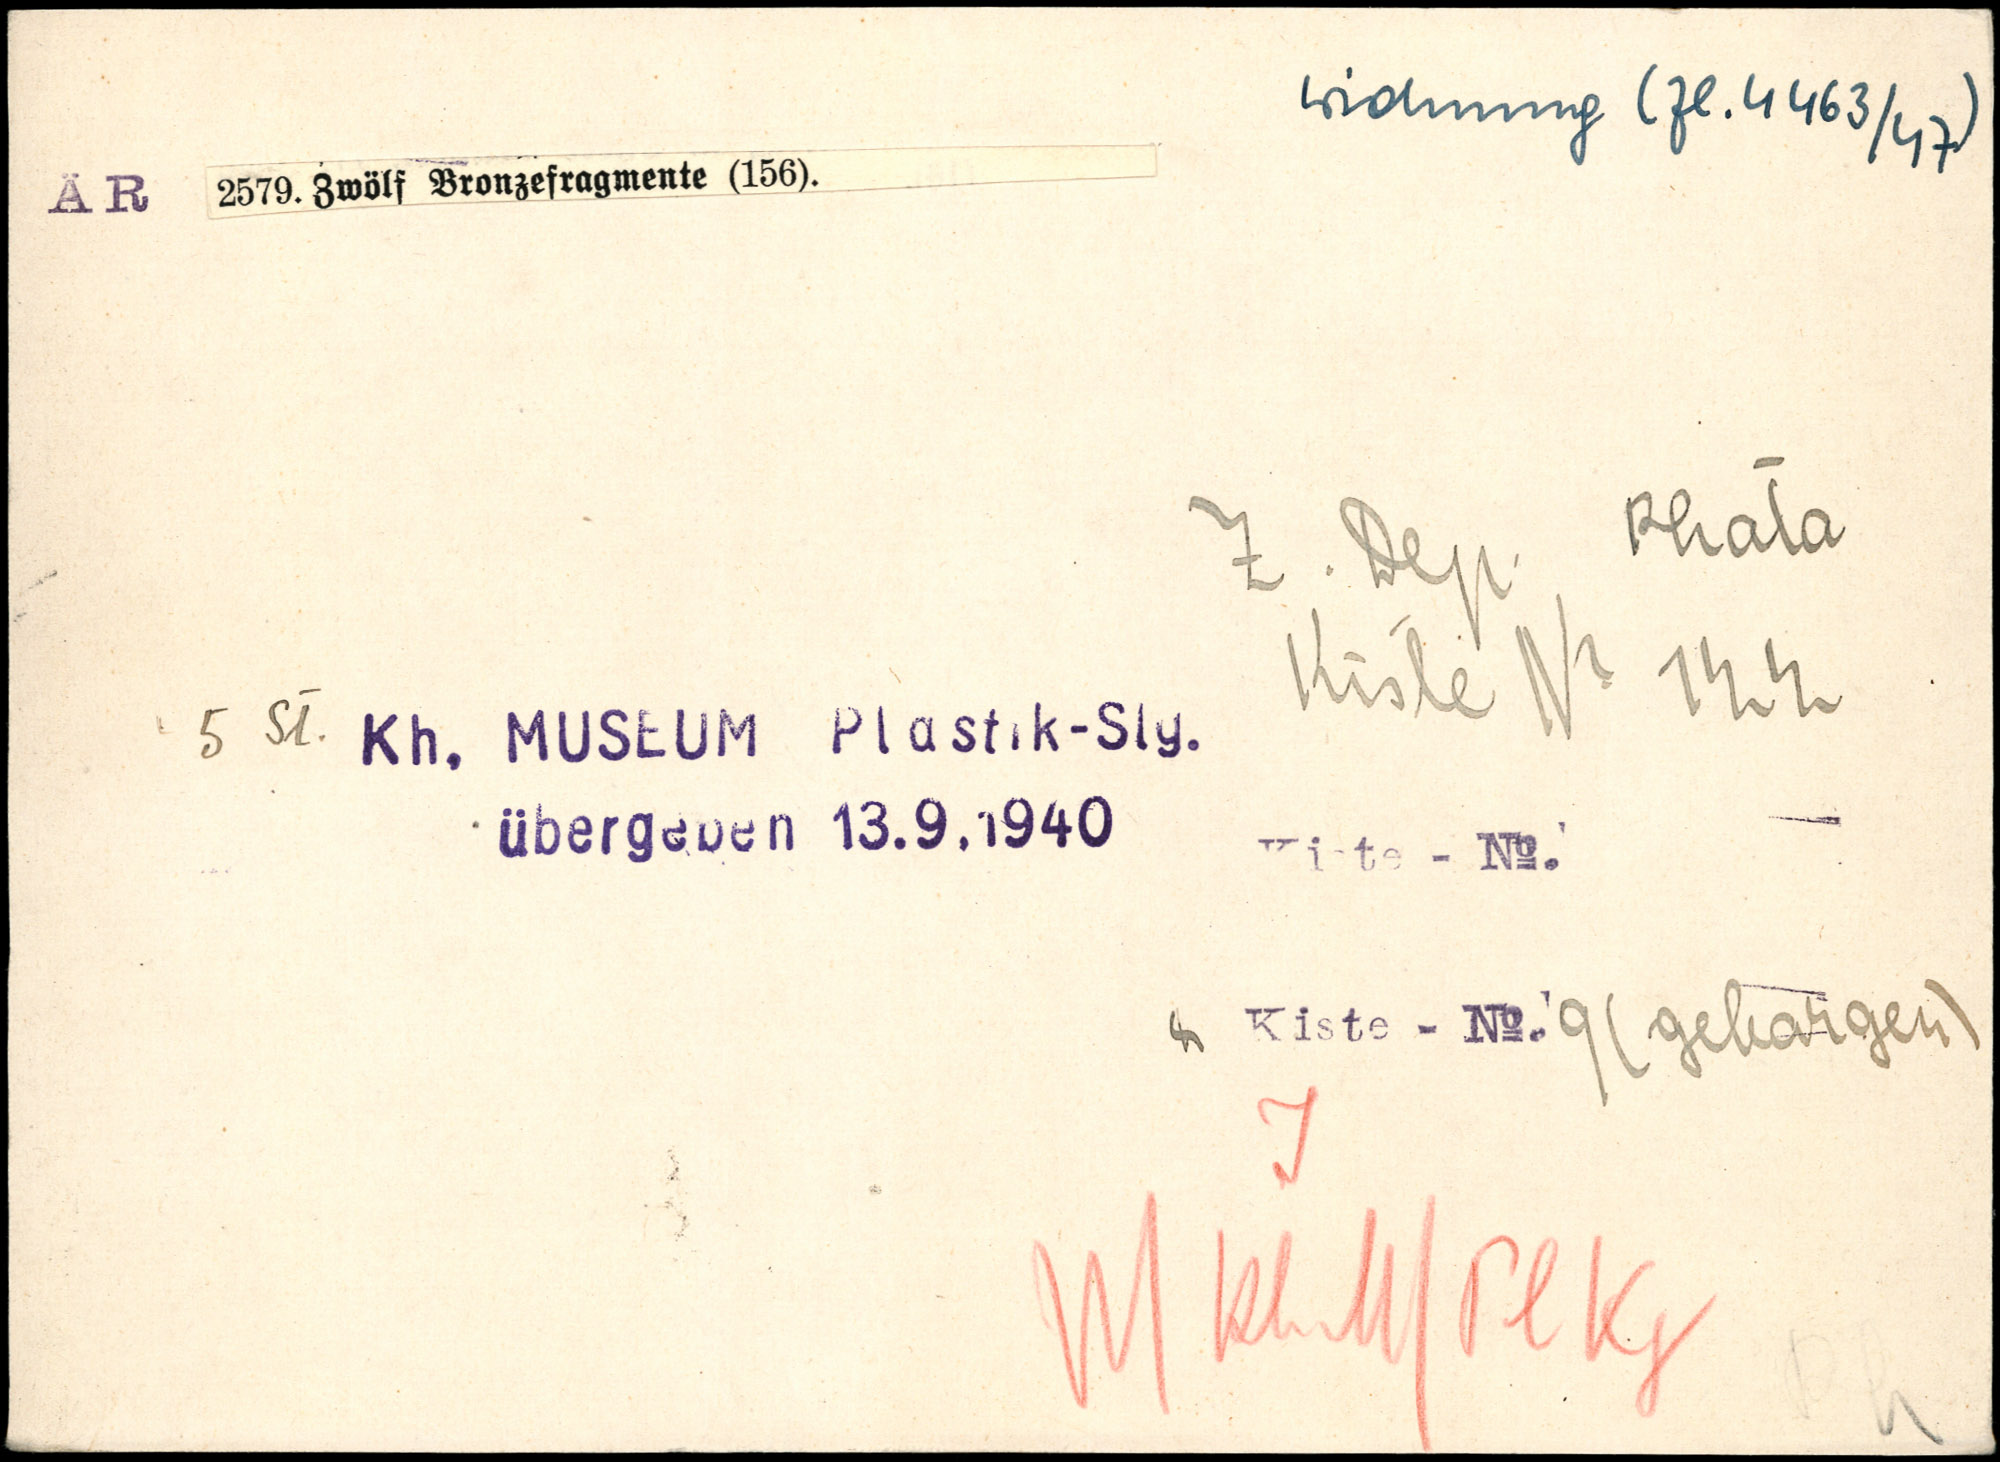 Widmung (Zl. 4463/47)
ÄR 2579. Zwölf Bronzefragmente (156).
Z. Dep.
Kiste Nr 144
5 St. Kh. MUSEUM Plastik-Slg.
übergeben 13.9.1940
Kiste - No.
Kiste - No. 9 (geborgen)
I